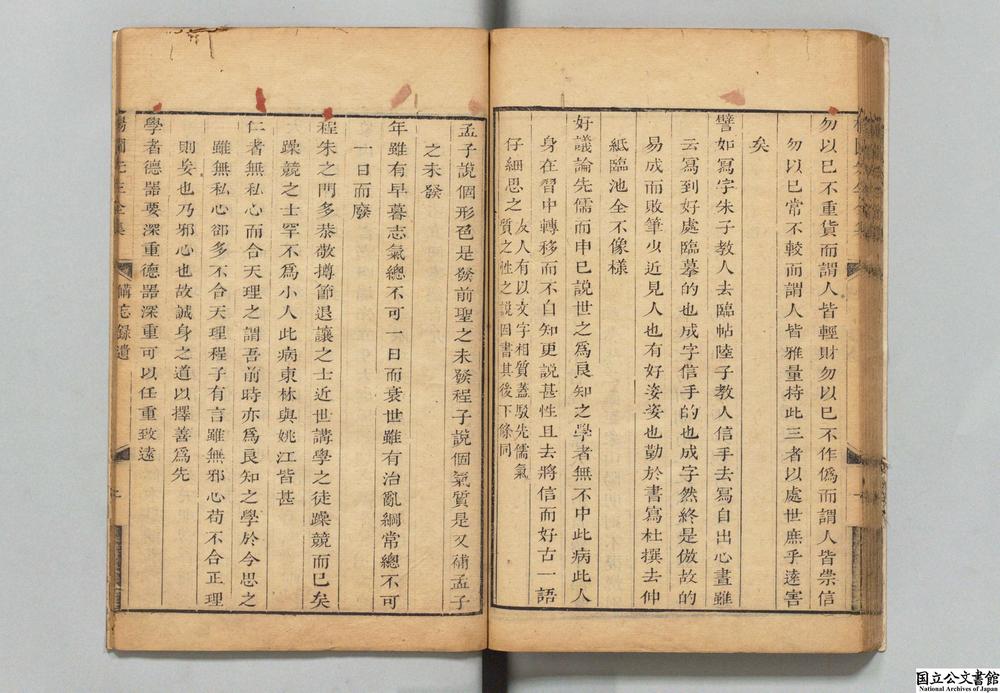 勿以已不重貨而謂人皆輕財勿以已不作僞而謂人皆崇信
勿以已常不較而謂人皆雅量持此三者以處世庶乎遠害
矣
譬如寫字朱子教人去臨帖陸子教人信手去寫自出心畫雖
云寫到好處臨摹的也成字信手的也成字然終是倣故的
易成而敗筆少近見人也有好姿姿也勤於書寫杜撰去伸
紙臨池全不像樣
好議論先儒而申已說世之爲良知之學者無不中此病此人
身在習中轉移而不自知更説甚性且去將信而好古一語
仔細思之
友人有以文字相質蓋駁先儒氣
質之性之説因書其後下條同
孟子說個形色是發前聖之未發程子說個氣質是又補孟子
之未發
年雖有早暮志氣總不可一日而衰世雖有治亂綱常總不可
一日而廢
程朱之門多恭敬撙節退讓之士近世講學之徒躁競而已矣
躁競之士罕不爲小人此病東林與姚江皆甚
仁者無私心而合天理之謂吾前時亦爲良知之學於今思之
雖無私心卻多不合天理程子有言雖無邪心苟不合正理
則妄也乃邪心也故誠身之道以擇善爲先
學者德器要深重德器深重可以任重致遠
楊園先生全集
備忘錄遺
国立公文書館
National Archives of Japan